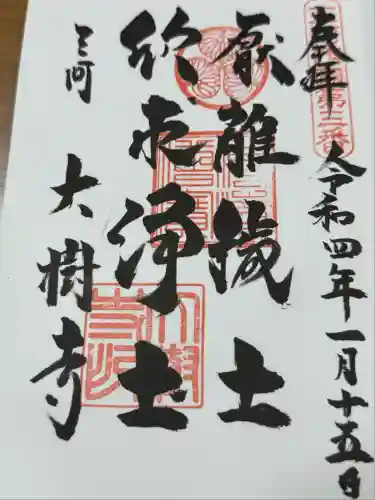 奉拝
令和四年一月十五日
厭離穢土
欣求浄土
三河
大樹寺